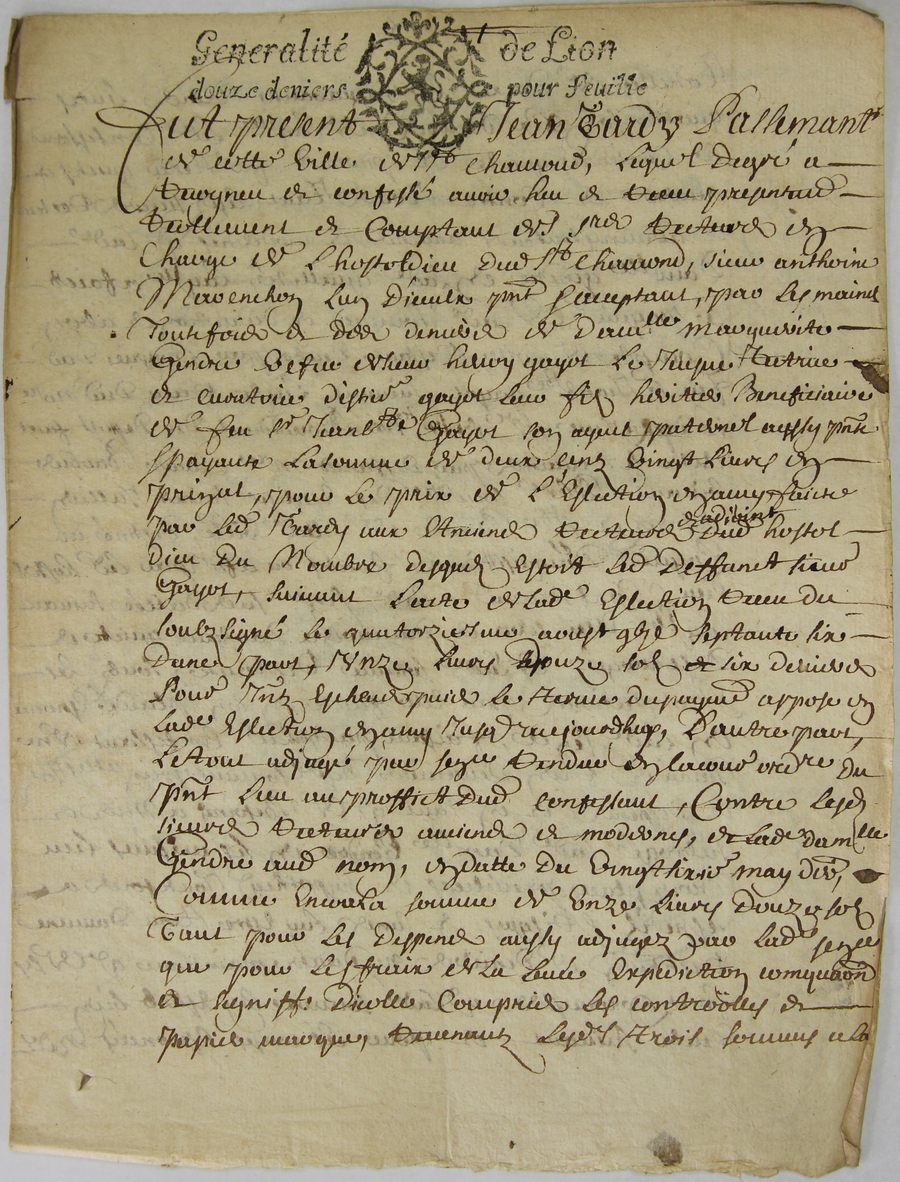 Generalité de Lion
douze deniers pour feuille
fut present Jean Tardy Passemant.r
de cette Ville de St Chamond, Lequel de gré a
recogneu et confessé avoir heu et receu presentem.t
reellement et Comptant des Srs recteurs en
Charge de L'hosteldieu dud St Chamond, sieur anthoine
L'un d'iceulx pnt & acceptant, par les mains
Toutefois et des deniers de dam.lle marguerite
Gendre vefve de sieur henry gayot Le Jeune Tutrice
et curatrice gayot leur filz heritier Beneficiaire
de feu Sr Jean B.te Gayot son ayeul paternel aussy pnte
& payante La somme de deux centz Vingt Livres en
prinpal, pour le prix de L'Eslection en amy faicte
par led Tardy aux Antiens recteurs et adjoint dud hostel
dieu Du Nombre desquels Estoit led Deffunct sieur
Gayot, suivant L'acte de lad.e Eslection receu du
soubzsigné Le quatorziesme aoust septante six
Dune part, Unze Livres Douze solz et six deniers
Pour Intz Escheus puis le terme du payem.t apposé en
lad.e Eslection en amy Jusqu'aujourdhuy, D'autre part,
Le tout adjugé par sen.ce rendue en la cour ordre du
pnt Lieu au proffict Dud confessant, Contre lesd
sieurs recteurs antiens et modernes, et Lad.e dam.lle
Gendre aud nom, en datte du Vingt sixie may der,
Comme Encor la somme de Unze Livres Douze solz
Tant pour les Despens aussy adjugez par lad.e sen.ce
que pour les frais de la Levée Expedition
et signiff.on D'icelle Compris les controolles et
papier marqué, revenantz lesd.s trois sommes a la